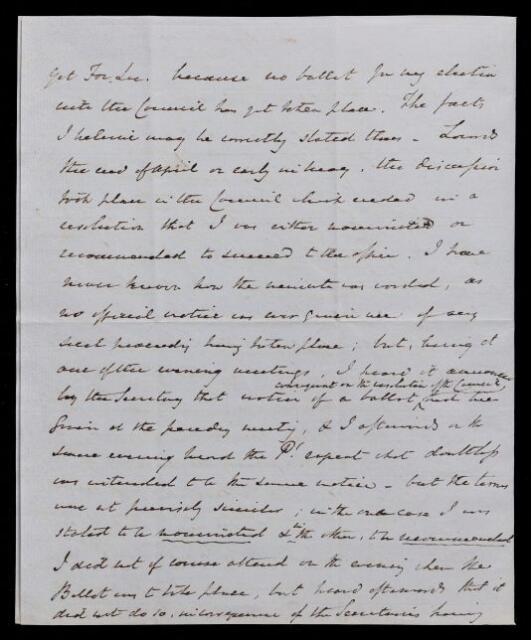 yet For. Sec. because no ballot for my election
into the Council has yet taken place. The facts
I believe may be correctly stated thus - Towards
the end of April or early in May, the discussion
took place in the Council which ended in a
resolution that I was either nominated or
recommended to succeed to the office. I have
never known how the minute was worded, as
no official notice was ever given me of any
such proceeding having taken place; but, being at
one of the evening meetings, I heard it announced
consequent on the resolution of the Council,
by the Secretary that notice of a ballot had been
given at the preceding meeting, & I afterwards on the
same evening heard the Pt. repeat what doubtless
was intended to be the same notice - but the terms
were not precisely similar; in the one case I was
stated to be nominated & in the other, to be recommended
I did not of course attend on the evening when the
Ballot was to take place, but heard afterwards that it
did not do so, in consequence of the Secretaries having